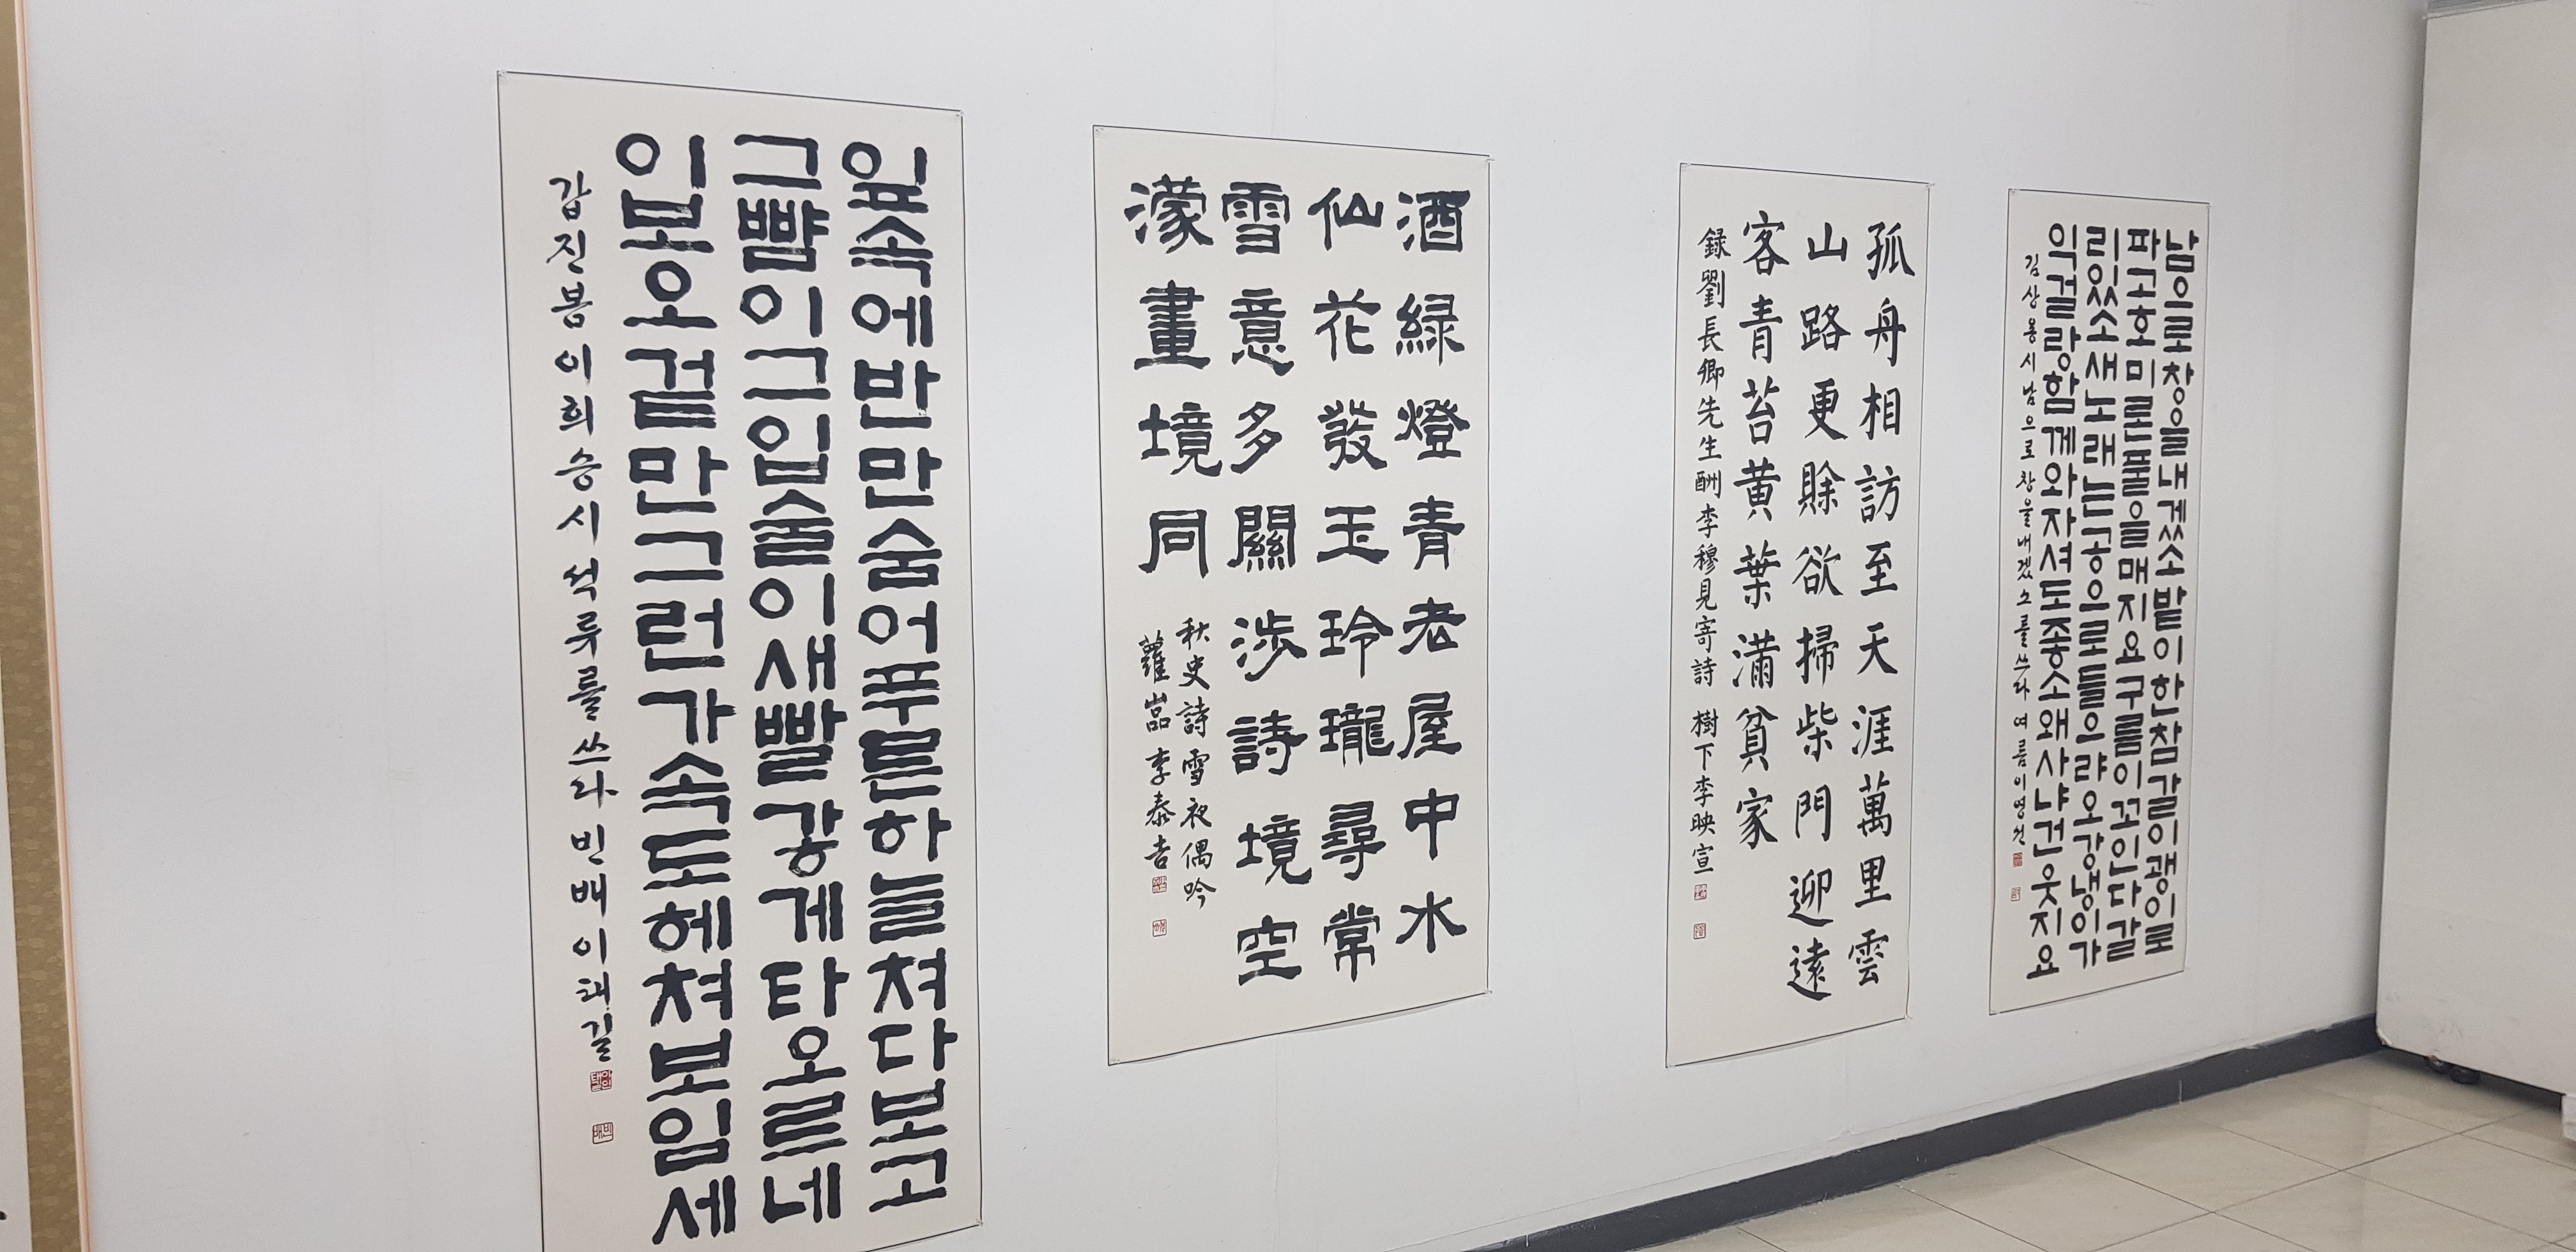 잎속에반만숨어푸른하늘쳐다보고
그뺨이그입술이새빨갛게타오르네
이보오겉만그런가속도헤쳐보입세
갑진봄이희승시석류를쓰다 빈배이태길
酒緑燈青老屋中水
仙花發玉玲瓏尋常
雪意多關涉詩境空
濛畫境同
秋史詩雪夜偶吟
蘿嵓李泰吉
孤舟相訪至天涯萬里雲
山路更賖欲掃柴門迎遠
客青苔黄葉滿貧家
録劉長卿先生酬李穆見寄詩 樹下李映宣
남으로창을내겠소밭이한참갈이괭이로
파고호미론풀을매지요구름이꼬인다갈
리있소새노래는공으로들으랴오강냉이가
익걸랑함께와자셔도좋소왜사냐건웃지요
김상용시남으로창을내겠소를쓰다